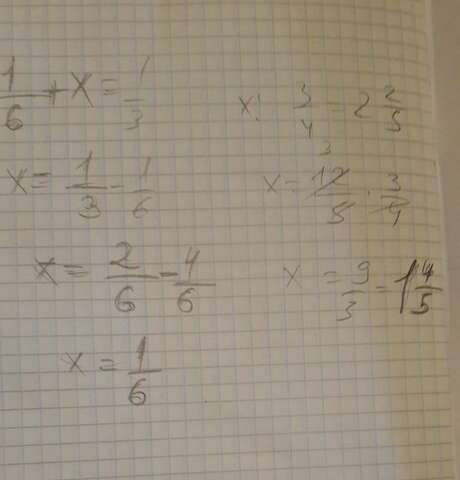 1/6 + x = 1/3
x = 1/3 - 1/6
x = 2/6 - 4/6
x = 1/6
x : 3/4 = 2 2/5
x = 12/5 · 3/4 3
x = 9/3 = 1 4/5